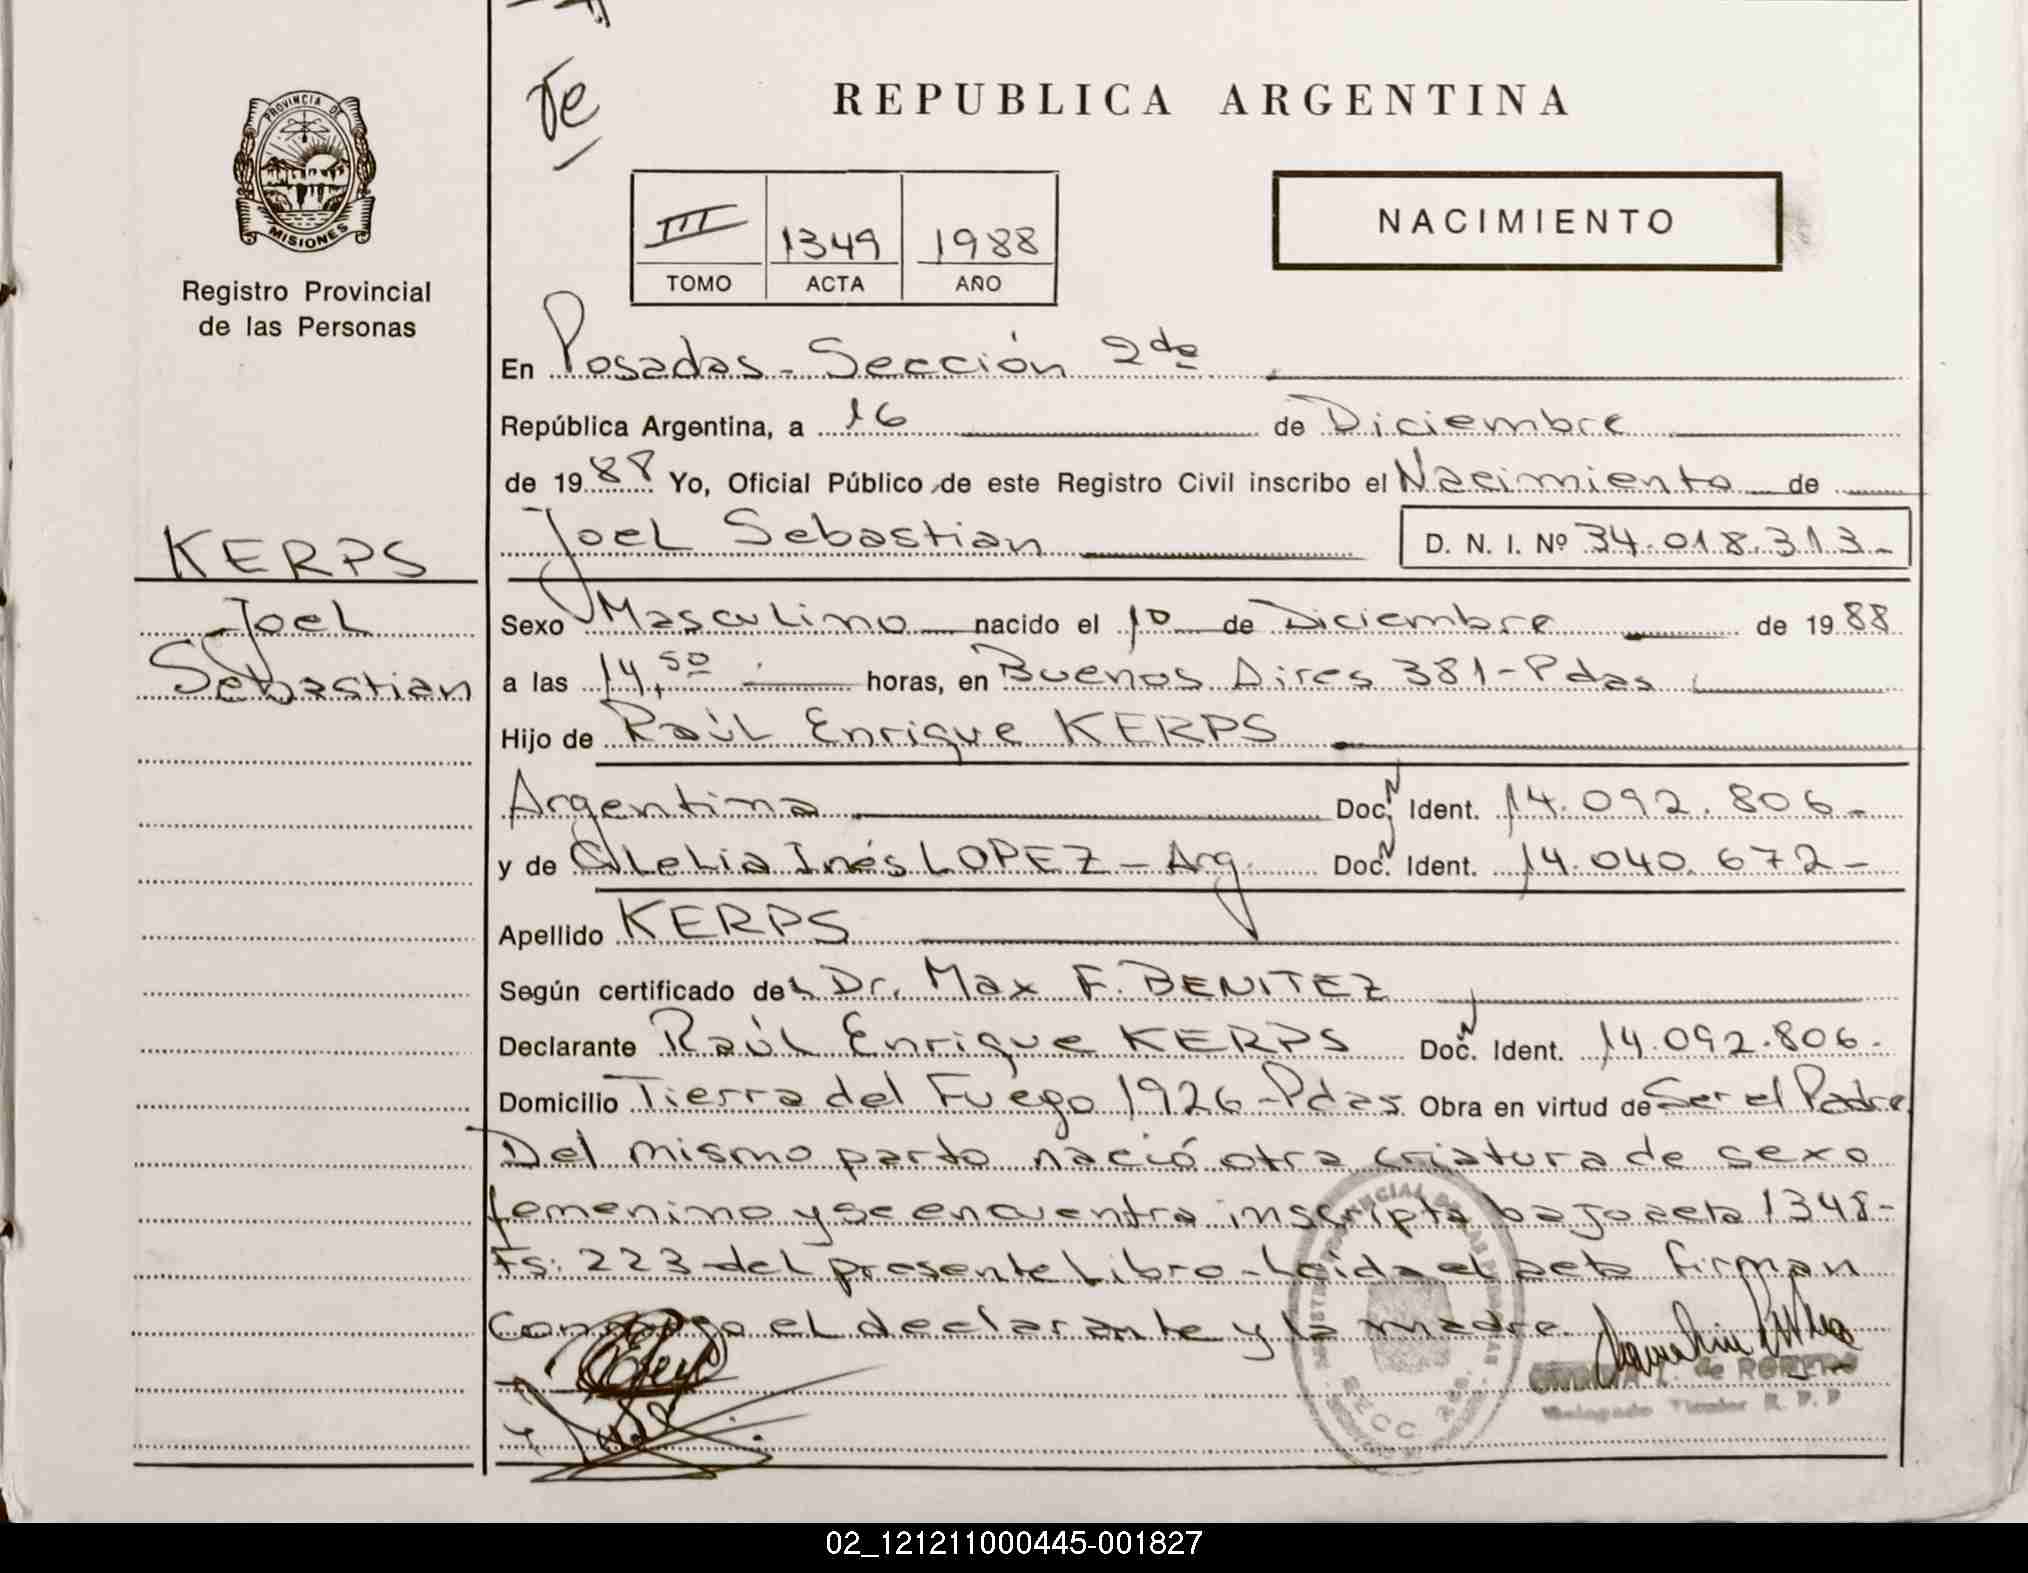 REPUBLICA ARGENTINA
PROVINCIA DE
MISIONES
Registro Provincial
de las Personas
III 1349 1988
TOMO ACTA AÑO
NACIMIENTO
En Posadas - Sección 2da
República Argentina, a 16 de Diciembre
de 1988 Yo, Oficial Público de este Registro Civil inscribo el Nacimiento de
Joel Sebastian D. N. I. Nº 34.018.313-
KERPS
Joel
Sebastian
Sexo Masculino nacido el 10 de Diciembre de 1988
a las 14,50 horas, en Buenos Aires 381 - Pdas
Hijo de Raúl Enrique KERPS
Argentina Doc. Ident. 14.092.806-
y de Inés LOPEZ - Arg. Doc. Ident. 14.040.672-
Apellido KERPS
Según certificado del Dr. Max F. BENITEZ
Declarante Raúl Enrique KERPS Doc. Ident. 14.092.806-
Domicilio Tierra del Fuego 1926 - Pdas Obra en virtud de Ser el Padre
Del mismo parto nació otra criatura de sexo
femenino y se encuentra inscripta bajo acta 1348-
Fs: 223 del presente Libro - Leída el acta firman
Conmigo el declarante y la madre.
de
02_121211000445-001827